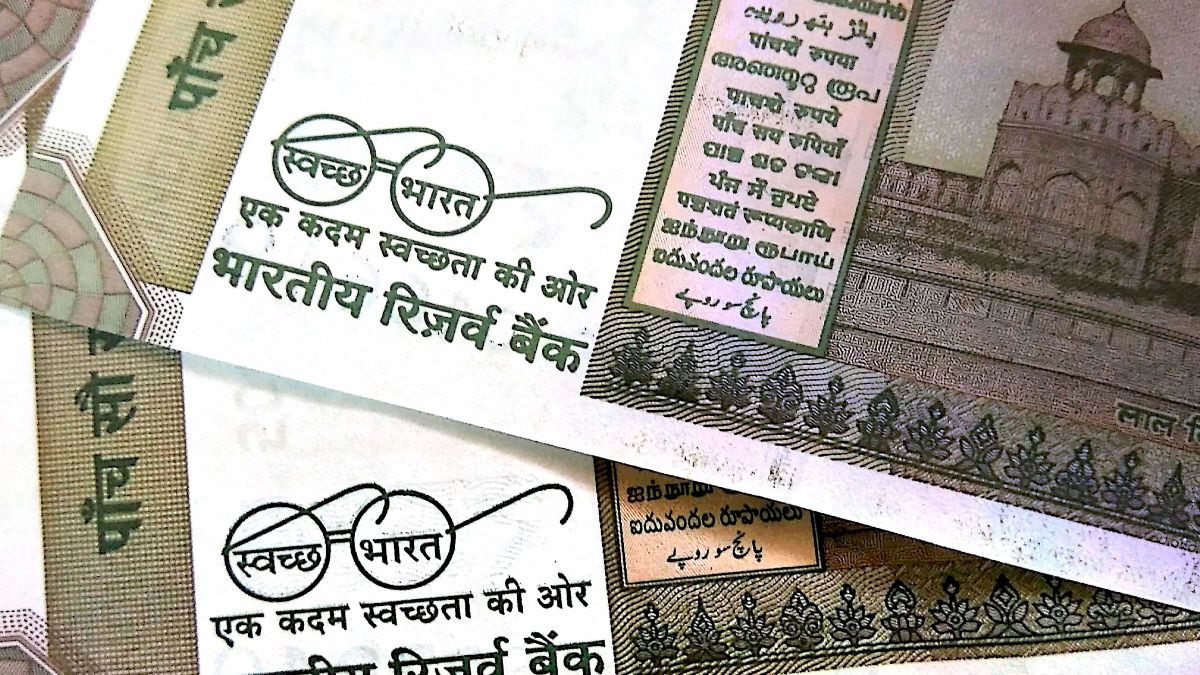 पाँच
स्वच्छ भारत
एक कदम स्वच्छता की ओर
भारतीय रिज़र्व बैंक
पांचशें रुपया
അഞ്ഞൂറു രൂപ
पाचशे रुपये
पाँच सय रुपियाँ
ପାଞ୍ଚ ଶତ ଟଙ୍କା
ਪੰਜ ਸੌ ਰੁਪਏ
पञ्चशतं रूप्यकाणि
ஐந்நூறு ரூபாய்
ఐదువందల రూపాయలు
پانچ سو روپے
लाल
पाँच सौ
स्वच्छ भारत
एक कदम स्वच्छता की ओर
रिज़र्व बैंक
ஐந்நூறு
ఐదువందల రూపాయలు
پانچ سو روپے